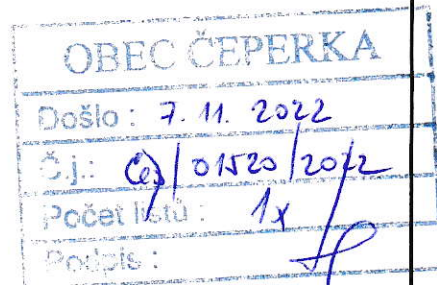 OBEC ČEPERKA
Došlo: 7. 11. 2022
Č.j.: Čep/01520/2022
Počet listů: 1x
Podpis: